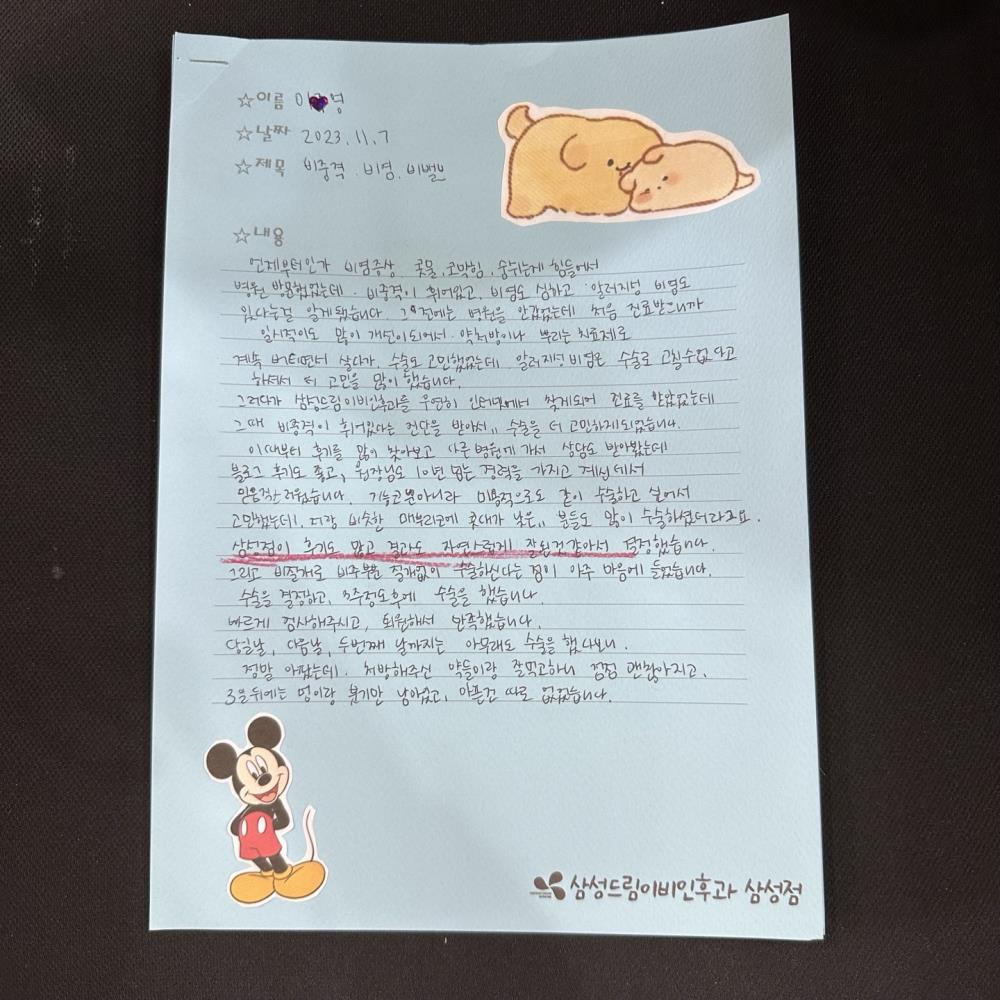 ☆이름 이 영
☆날짜 2023.11.7
☆제목 비중격.비염.비밸브
☆내용
언제부터인가 비염증상 콧물, 코막힘, 숨쉬는게 힘들어서
병원 방문했었는데. 비중격이 휘어있고, 비염도 심하고 알러지성 비염도
있다는걸 알게됐습니다. 그전에는 병원을 안갔었는데 처음 진료받으니까
일시적이도 많이 개선이되어서. 약처방이나 뿌리는 치료제로
계속 버티면서 살다가, 수술도 고민했었는데 알러지성 비염은 수술로 고칠수없다고
하셔서 더 고민을 많이 했습니다.
그러다가 삼성드림이비인후과를 우연히 인터넷에서 찾게되어 진료를 받았었는데
그때 비중격이 휘어있다는 진단을 받아서.. 수술을 더 고민하게되었습니다.
이때부터 후기를 많이 찾아보고 다른병원에 가서 상담도 받아봤는데
블로그 후기도 좋고, 원장님도 10년 넘는 경력을 가지고 계신데서
믿음직스러웠습니다. 기능코뿐아니라 미용적으로도 같이 수술하고 싶어서
고민했는데, 저랑 비슷한 매부리코에 콧대가 낮은.. 분들도 많이 수술하셨더라구요.
삼성점이 후기도 많고 결과도 자연스럽게 잘된것같아서 결정했습니다.
그리고 비절개로 비주부분 절개없이 수술하신다는 점이 아주 마음에 들었습니다.
수술을 결정하고, 3주정도후에 수술을 했습니다.
빠르게 검사해주시고, 퇴원해서 만족했습니다.
당일날, 다음날, 두번째 날까지는 아무래도 수술을 했다보니.
정말 아팠는데. 처방해주신 약들이랑 잘먹고하니 점점 괜찮아지고,
3일뒤에는 멍이랑 붓기만 남아있고, 아픈건 따로 없었습니다.
삼성드림이비인후과 삼성점